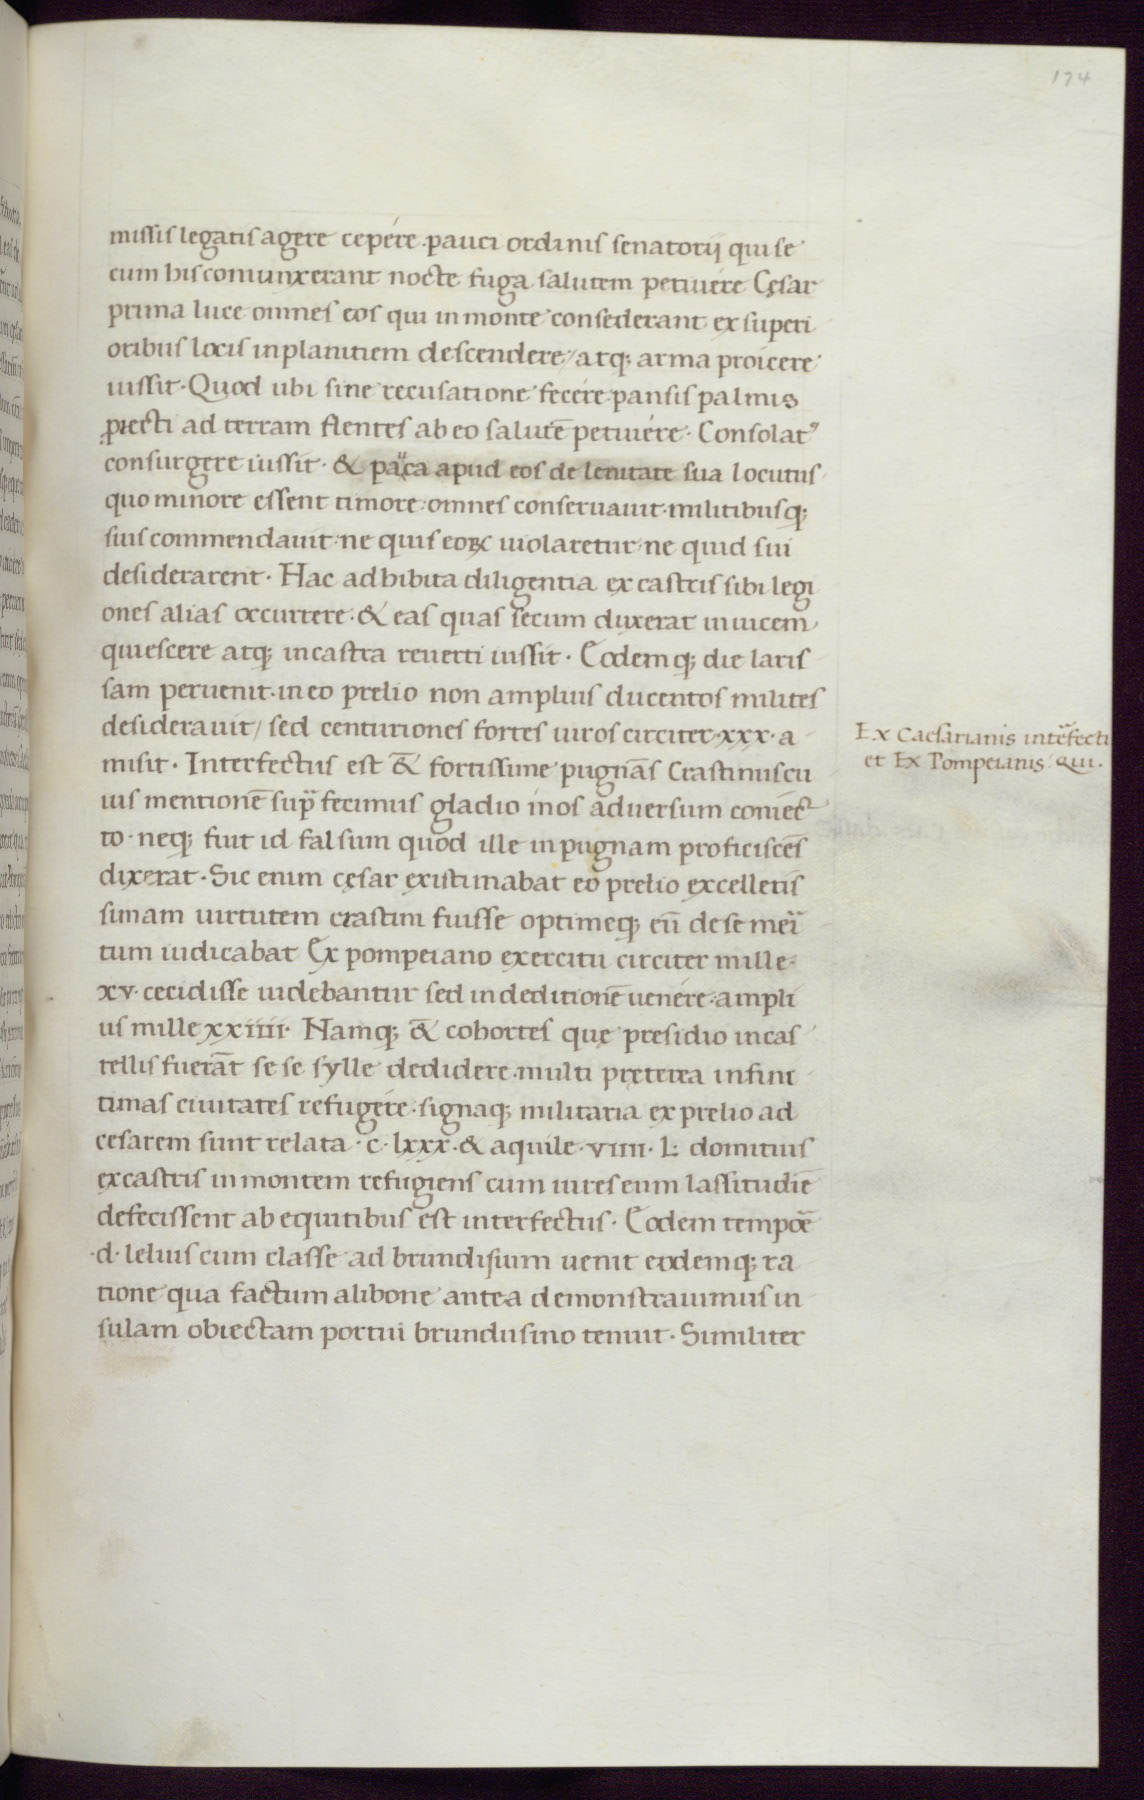 174
missis legatis agere cepére. pauci ordinis senatorij qui se
cum his coniunxerant nocte fuga salutem petiuére Cęsar
prima luce omnes eos qui in monte consederant ex superi
oribus locis in planitiem descendere / atq; arma proicere
iussit · Quod ubi sine recusatione fecére pansis palmis
ꝓiecti ad terram flentes ab eo salutē petiuére · Consolatꝰ
consurgere iussit · & pauca apud eos de lenitate sua locutus
quo minore essent timore · omnes conseruauit · militibusq;
suis commendauit · ne quis eoꝝ uiolaretur · ne quid sui
desiderarent · Hac adhibita diligentia ex castris sibi legi
ones alias occurrere · & eas quas secum duxerat inuicem
quiescere atq; in castra reuerti iussit · Eodemq; die laris
sam peruenit · in eo prelio non amplius ducentos milites
desiderauit / sed centuriones fortes uiros circiter · xxx · a
misit · Interfectus est &̄ fortissime pugnās Crastinus cu
ius mentionē sup̄ fecimus gladio in os aduersum coniec
to · neq; fuit id falsum quod ille in pugnam proficiscēs
dixerat · Sic enim cęsar existimabat eo prelio excelletis
simam uirtutem crastini fuisse optimeq; eū de se meri
tum iudicabat Ex pompeiano exercitu circiter mille
xv · cecidisse uidebantur sed in deditionē uenére · ampli
us mille xxiiii · Namq; &̄ cohortes quę presidio in cas
tellis fuerāt se se sylle dedidere · multi pręterea in finit
timas ciuitates refugére · signaq; militaria ex prelio ad
cesarem sunt relata · c · lxxx · & aquile · viiii · L: domitius
ex castris in montem refugiens cum uires eum lassitudiē
defecissent ab equitibus est interfectus · Eodem tempoē
· d · lelius cum classe ad brundisium uenit eodemq; ra
tione qua factum a libone antea demonstrauimus in
sulam obiectam portui brundusino tenuit · Similiter
Ex Caesarianis intēfecti
et Ex Pompeianis Qui .